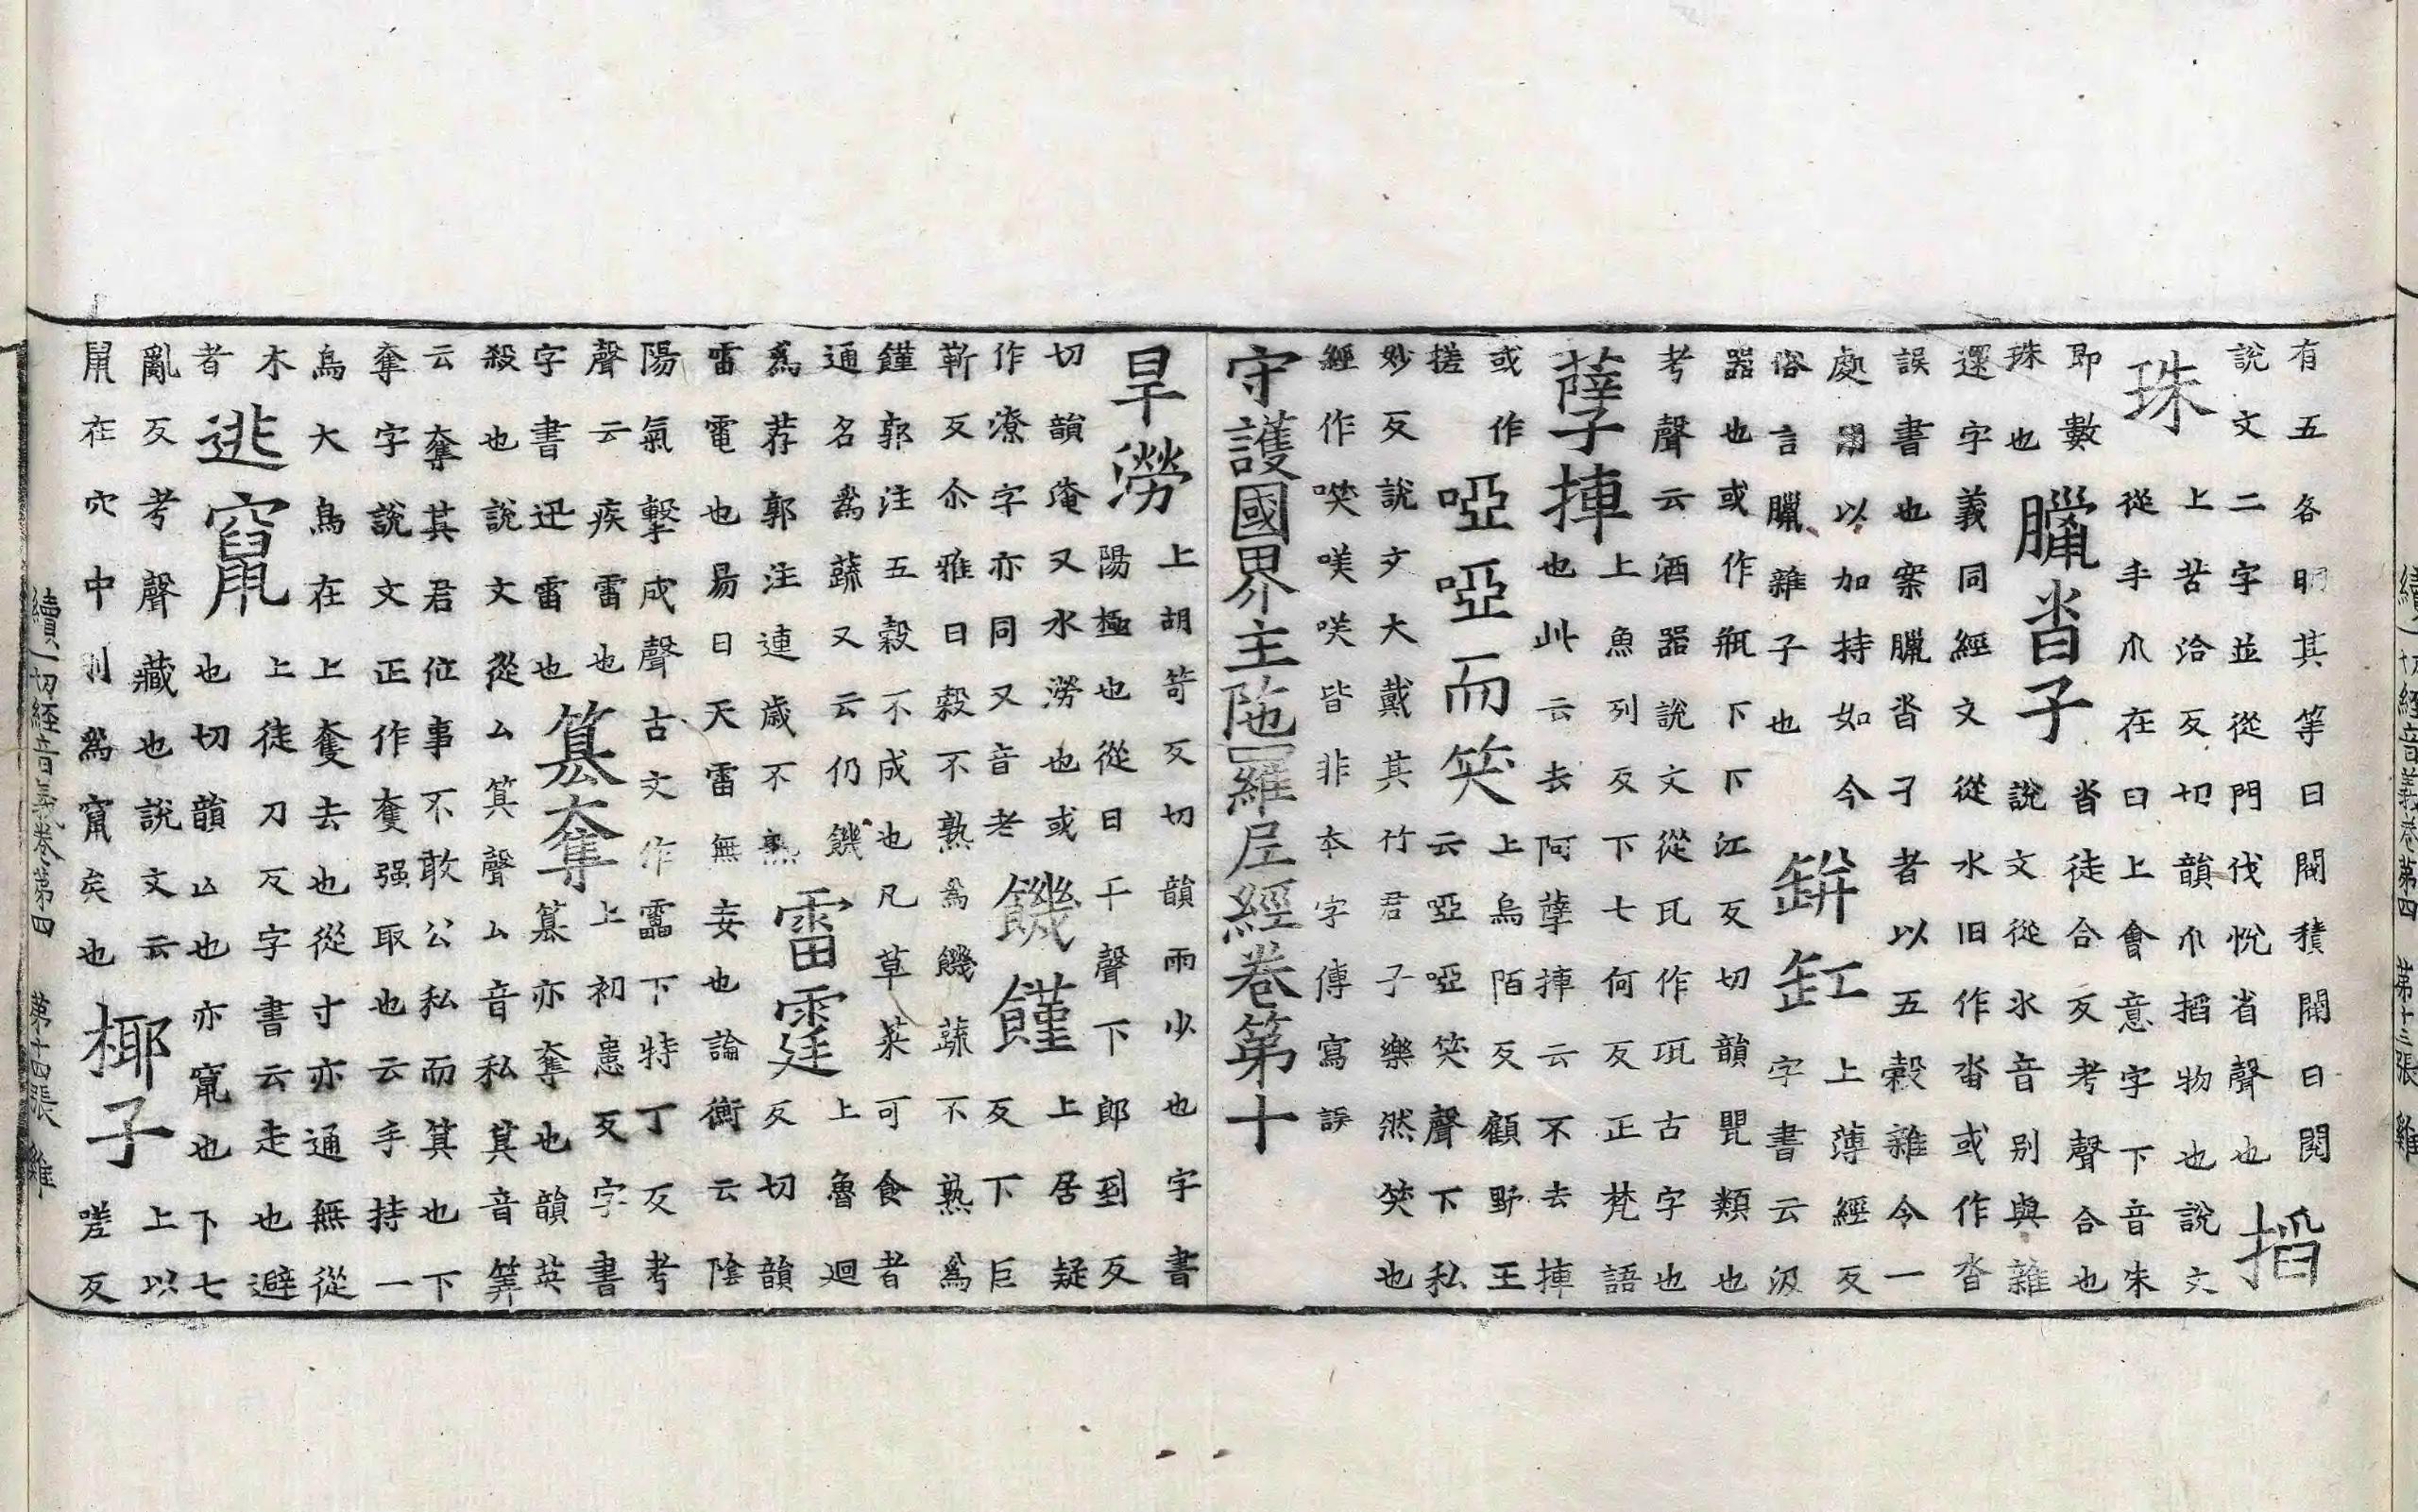 續一切經音義卷第四 第十三張 雞
有五各明其等曰閥積閱曰閱
說文二字並從門伐悅省聲也
搯
珠
上苦洽反切韻爪搯物也說文
從手爪在臼上會意字下音朱
即數
珠也
臘沓子
沓徒合反考聲合也
說文從水音別與雜
還字義同經文從水旧作畓或作沓
誤書也案臘沓子者以五穀雜令一
處用以加持如今
俗言臘雜子也
缾缸
上薄經反
字書云汲
器也或作瓶下下江反切韻甖類也
考聲云酒器說文從瓦作瓨古字也
孽捙
上魚列反下七何反正梵語
也此云去阿孽捙云不去捙
或作
搓
啞啞而笑
上烏陌反顧野王
云啞啞笑聲下私
妙反說文大戴其竹君子樂然笑也
經作㗛嘆咲皆非本字傳寫誤
守護國界主陁羅尼經卷第十
旱澇
上胡笴反切韻雨少也字書
陽極也從日干聲下郎到反
切韻淹又水澇也或
作潦字亦同又音老
饑饉
上居疑
反下巨
靳反尒雅曰穀不熟為饑蔬不熟為
饉郭注五穀不成也凡草菜可食者
通名為蔬又云仍饑
為荐郭注連歲不熟
雷霆
上魯迴
反切韻
雷電也易曰天雷無妄也論衡云陰
陽氣擊成聲古文作靁下特丁反考
聲云疾雷也
字書迅雷也
篡奪
上初患反字書
篡亦奪也韻英
殺也說文從厶箕聲厶音私箕音筭
云奪其君位事不敢公私而箕也下
奪字說文正作奪强取也云手持一
鳥大鳥在上奪去也從寸亦通無從
木
者
逃竄
上徒刀反字書云走也避
也切韻亾也亦竄也下七
亂反考聲藏也說文云
鼠在穴中則為竄矣也
椰子
上以
嗟反
續一切經音義卷第四 第十四張 雞